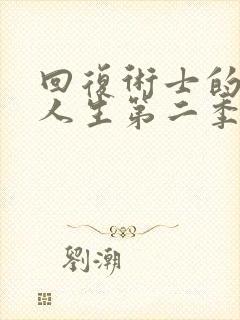 回復術士的
人生第二季
劉潮